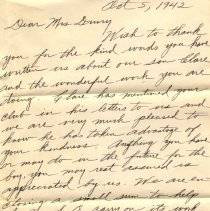 Oct 5, 1942
Dear Mrs Dewry
Wish to thank
you for the kind words you have
written us about our son Clare
and the wonderful work you are
doing. Clare has mentioned your
club in his letters to us and
we are very much pleased to
know he has taken advantage of
your kindness. Anything you have
or may do in the future for the
boy, you may rest assured is
appreciated by us. We are en-
closing a small sum to help
carry on its work